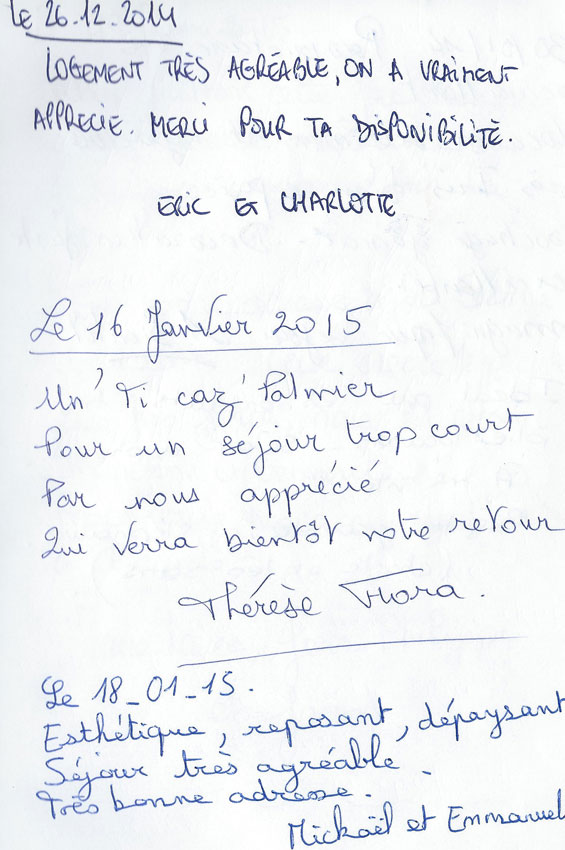 Le 26.12.2014
LOGEMENT TRÈS AGRÉABLE, ON A VRAIMENT
APPRECIE. MERCI POUR TA DISPONIBILITÉ.
ERIC ET CHARLOTTE
Le 16 Janvier 2015
Un' Ti caz' Palmier
Pour un séjour trop court
Par nous apprécié
Qui verra bientôt notre retour
Thérèse Flora.
Le 18_01_15.
Esthétique, reposant, dépaysant
Séjour très agréable.
Très bonne adresse.
Mickaël et Emmanuel